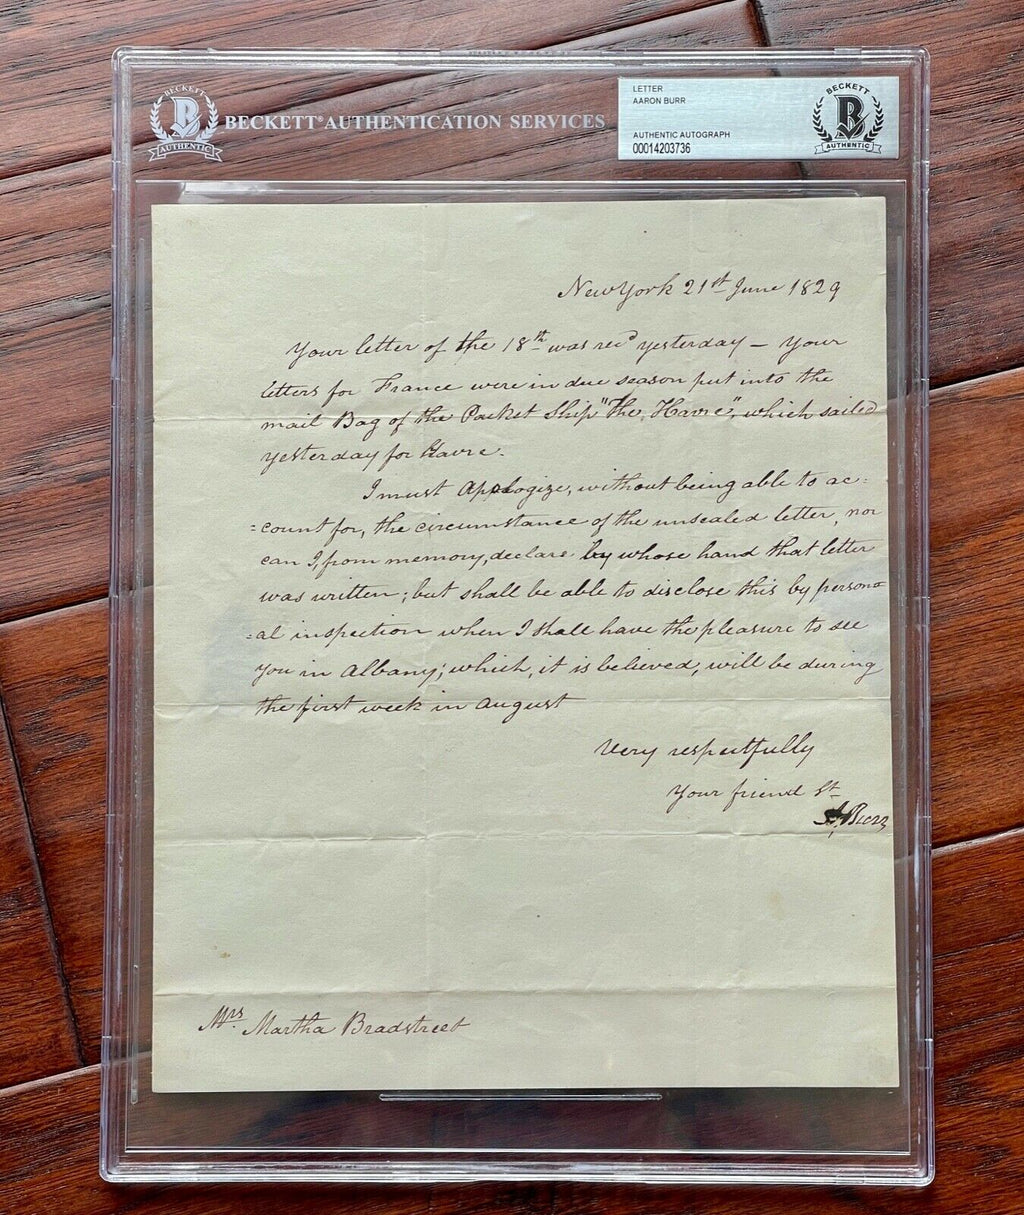 BECKETT
B
AUTHENTIC
BECKETT® AUTHENTICATION SERVICES
LETTER
AARON BURR
AUTHENTIC AUTOGRAPH
00014203736
BECKETT
B
AUTHENTIC
New York 21st June 1829
Your letter of the 18th was recd yesterday — Your
letters for France were in due season put into the
mail Bag of the Packet Ship "the Havre", which sailed
yesterday for Havre.
I must Apologize, without being able to ac=
=count for, the circumstance of the unsealed letter, nor
can I, from memory, declare by whose hand that letter
was written; but shall be able to disclose this by person=
=al inspection when I shall have the pleasure to see
you in Albany; which, it is believed, will be during
the first week in August
Very respectfully
Your friend St
A. Burr
Mrs. Martha Bradstreet